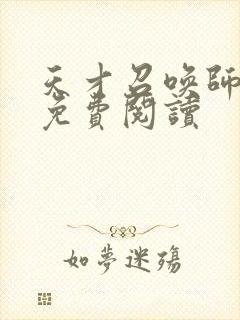 天才召喚師
免費閱讀
如夢迷殤